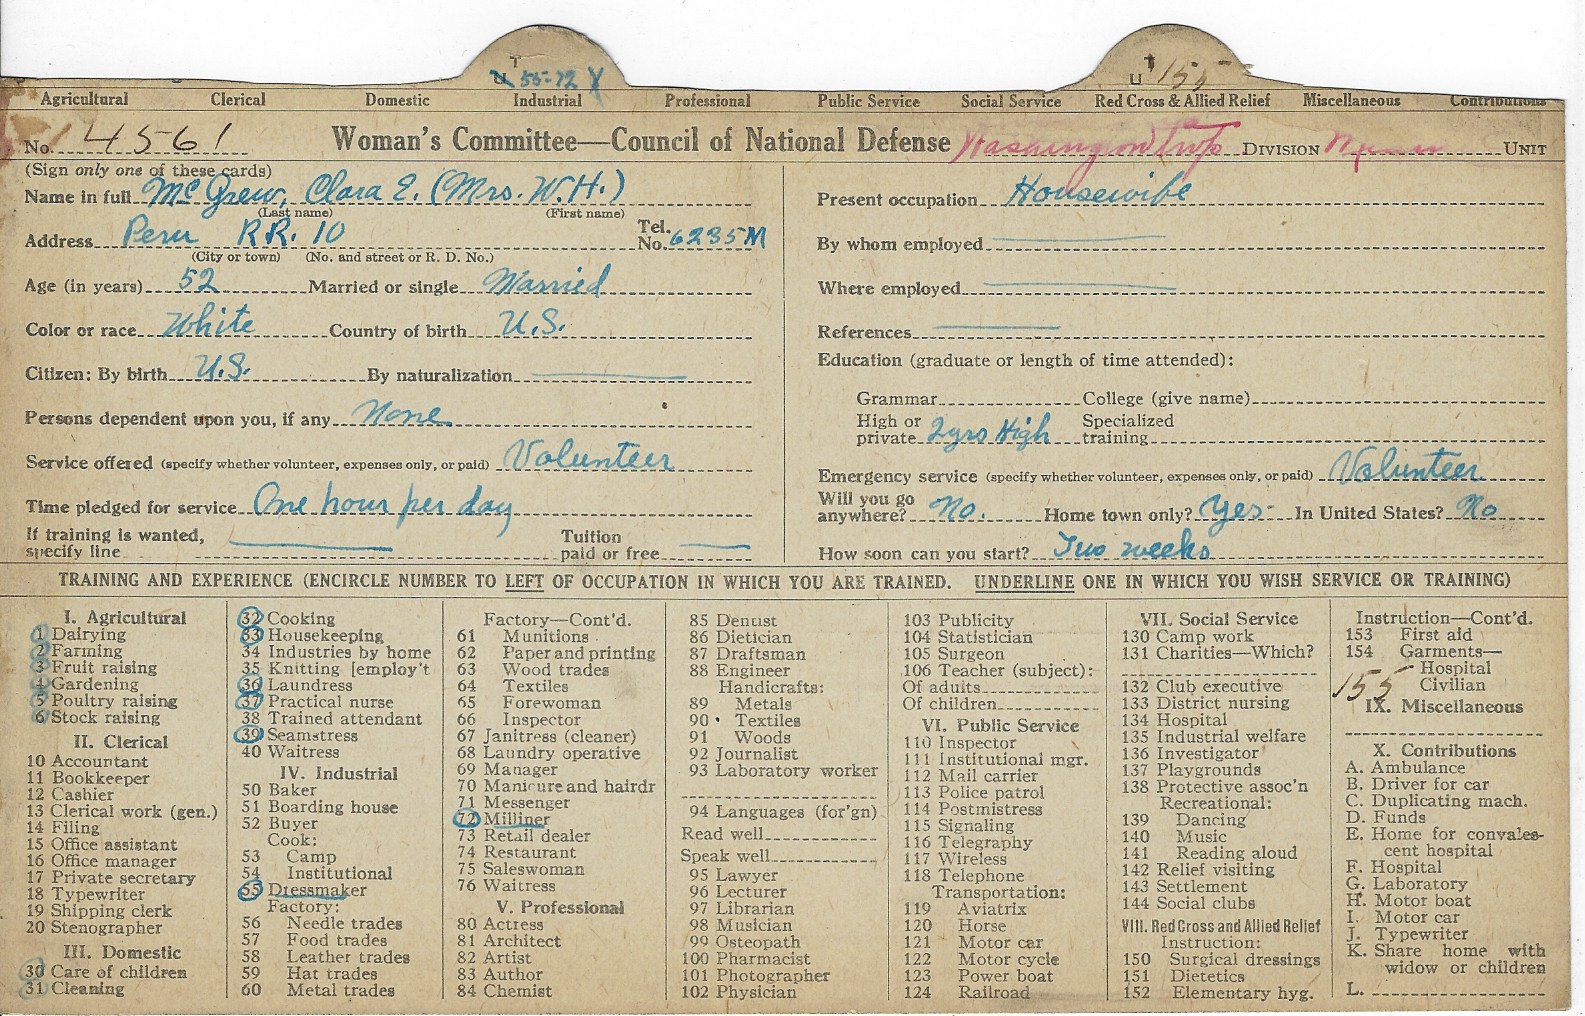 T
U 55-72 X
T
U 155
Agricultural Clerical Domestic Industrial Professional Public Service Social Service Red Cross & Allied Relief Miscellaneous Contributions
No. 4561 Woman's Committee—Council of National Defense Washington Twp DIVISION UNIT
(Sign only one of these cards)
Name in full Mc Grew, Clara E. (Mrs. W.H.)
(Last name) (First name)
Address Peru R.R. 10 Tel. No. 6235M
(City or town) (No. and street or R. D. No.)
Age (in years) 52 Married or single Married
Color or race White Country of birth U.S.
Citizen: By birth U.S. By naturalization
Persons dependent upon you, if any None
Service offered (specify whether volunteer, expenses only, or paid) Volunteer
Time pledged for service One hour per day
If training is wanted, specify line Tuition paid or free
Present occupation Housewife
By whom employed
Where employed
References
Education (graduate or length of time attended):
Grammar College (give name)
High or private 2yrs High Specialized training
Emergency service (specify whether volunteer, expenses only, or paid) Volunteer
Will you go anywhere? No. Home town only? Yes- In United States? No
How soon can you start? Two weeks
TRAINING AND EXPERIENCE (ENCIRCLE NUMBER TO LEFT OF OCCUPATION IN WHICH YOU ARE TRAINED. UNDERLINE ONE IN WHICH YOU WISH SERVICE OR TRAINING)
I. Agricultural
1 Dairying
2 Farming
3 Fruit raising
4 Gardening
5 Poultry raising
6 Stock raising
II. Clerical
10 Accountant
11 Bookkeeper
12 Cashier
13 Clerical work (gen.)
14 Filing
15 Office assistant
16 Office manager
17 Private secretary
18 Typewriter
19 Shipping clerk
20 Stenographer
III. Domestic
30 Care of children
31 Cleaning
32 Cooking
33 Housekeeping
34 Industries by home
35 Knitting [employ't
36 Laundress
37 Practical nurse
38 Trained attendant
39 Seamstress
40 Waitress
IV. Industrial
50 Baker
51 Boarding house
52 Buyer
Cook:
53 Camp
54 Institutional
55 Dressmaker
Factory:
56 Needle trades
57 Food trades
58 Leather trades
59 Hat trades
60 Metal trades
Factory—Cont'd.
61 Munitions
62 Paper and printing
63 Wood trades
64 Textiles
65 Forewoman
66 Inspector
67 Janitress (cleaner)
68 Laundry operative
69 Manager
70 Manicure and hairdr
71 Messenger
72 Milliner
73 Retail dealer
74 Restaurant
75 Saleswoman
76 Waitress
V. Professional
80 Actress
81 Architect
82 Artist
83 Author
84 Chemist
85 Dentist
86 Dietician
87 Draftsman
88 Engineer
Handicrafts:
89 Metals
90 Textiles
91 Woods
92 Journalist
93 Laboratory worker
94 Languages (for'gn)
Read well
Speak well
95 Lawyer
96 Lecturer
97 Librarian
98 Musician
99 Osteopath
100 Pharmacist
101 Photographer
102 Physician
103 Publicity
104 Statistician
105 Surgeon
106 Teacher (subject):
Of adults
Of children
VI. Public Service
110 Inspector
111 Institutional mgr.
112 Mail carrier
113 Police patrol
114 Postmistress
115 Signaling
116 Telegraphy
117 Wireless
118 Telephone
Transportation:
119 Aviatrix
120 Horse
121 Motor car
122 Motor cycle
123 Power boat
124 Railroad
VII. Social Service
130 Camp work
131 Charities—Which?
132 Club executive
133 District nursing
134 Hospital
135 Industrial welfare
136 Investigator
137 Playgrounds
138 Protective assoc'n
Recreational:
139 Dancing
140 Music
141 Reading aloud
142 Relief visiting
143 Settlement
144 Social clubs
VIII. Red Cross and Allied Relief
Instruction:
150 Surgical dressings
151 Dietetics
152 Elementary hyg.
Instruction—Cont'd.
153 First aid
154 Garments—
Hospital
155 Civilian
IX. Miscellaneous
X. Contributions
A. Ambulance
B. Driver for car
C. Duplicating mach.
D. Funds
E. Home for convales-
cent hospital
F. Hospital
G. Laboratory
H. Motor boat
I. Motor car
J. Typewriter
K. Share home with
widow or children
L.